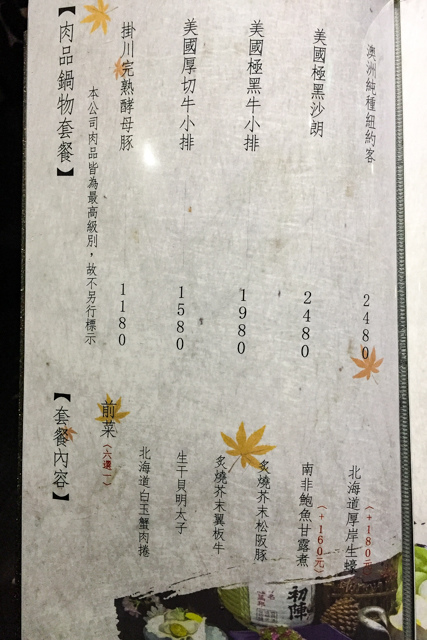 【肉品鍋物套餐】
本公司肉品皆為最高級別，故不另行標示
掛川完熟酵母豚 1180
美國厚切牛小排 1580
美國極黑牛小排 1980
美國極黑沙朗 2480
澳洲純種紐約客 2480
【套餐內容】
前菜(六選一)
北海道白玉蟹肉捲
生干貝明太子
炙燒芥末翼板牛
炙燒芥末松阪豚
南非鮑魚甘露煮(+160元)
北海道厚岸生蠔(+180元)
初陣